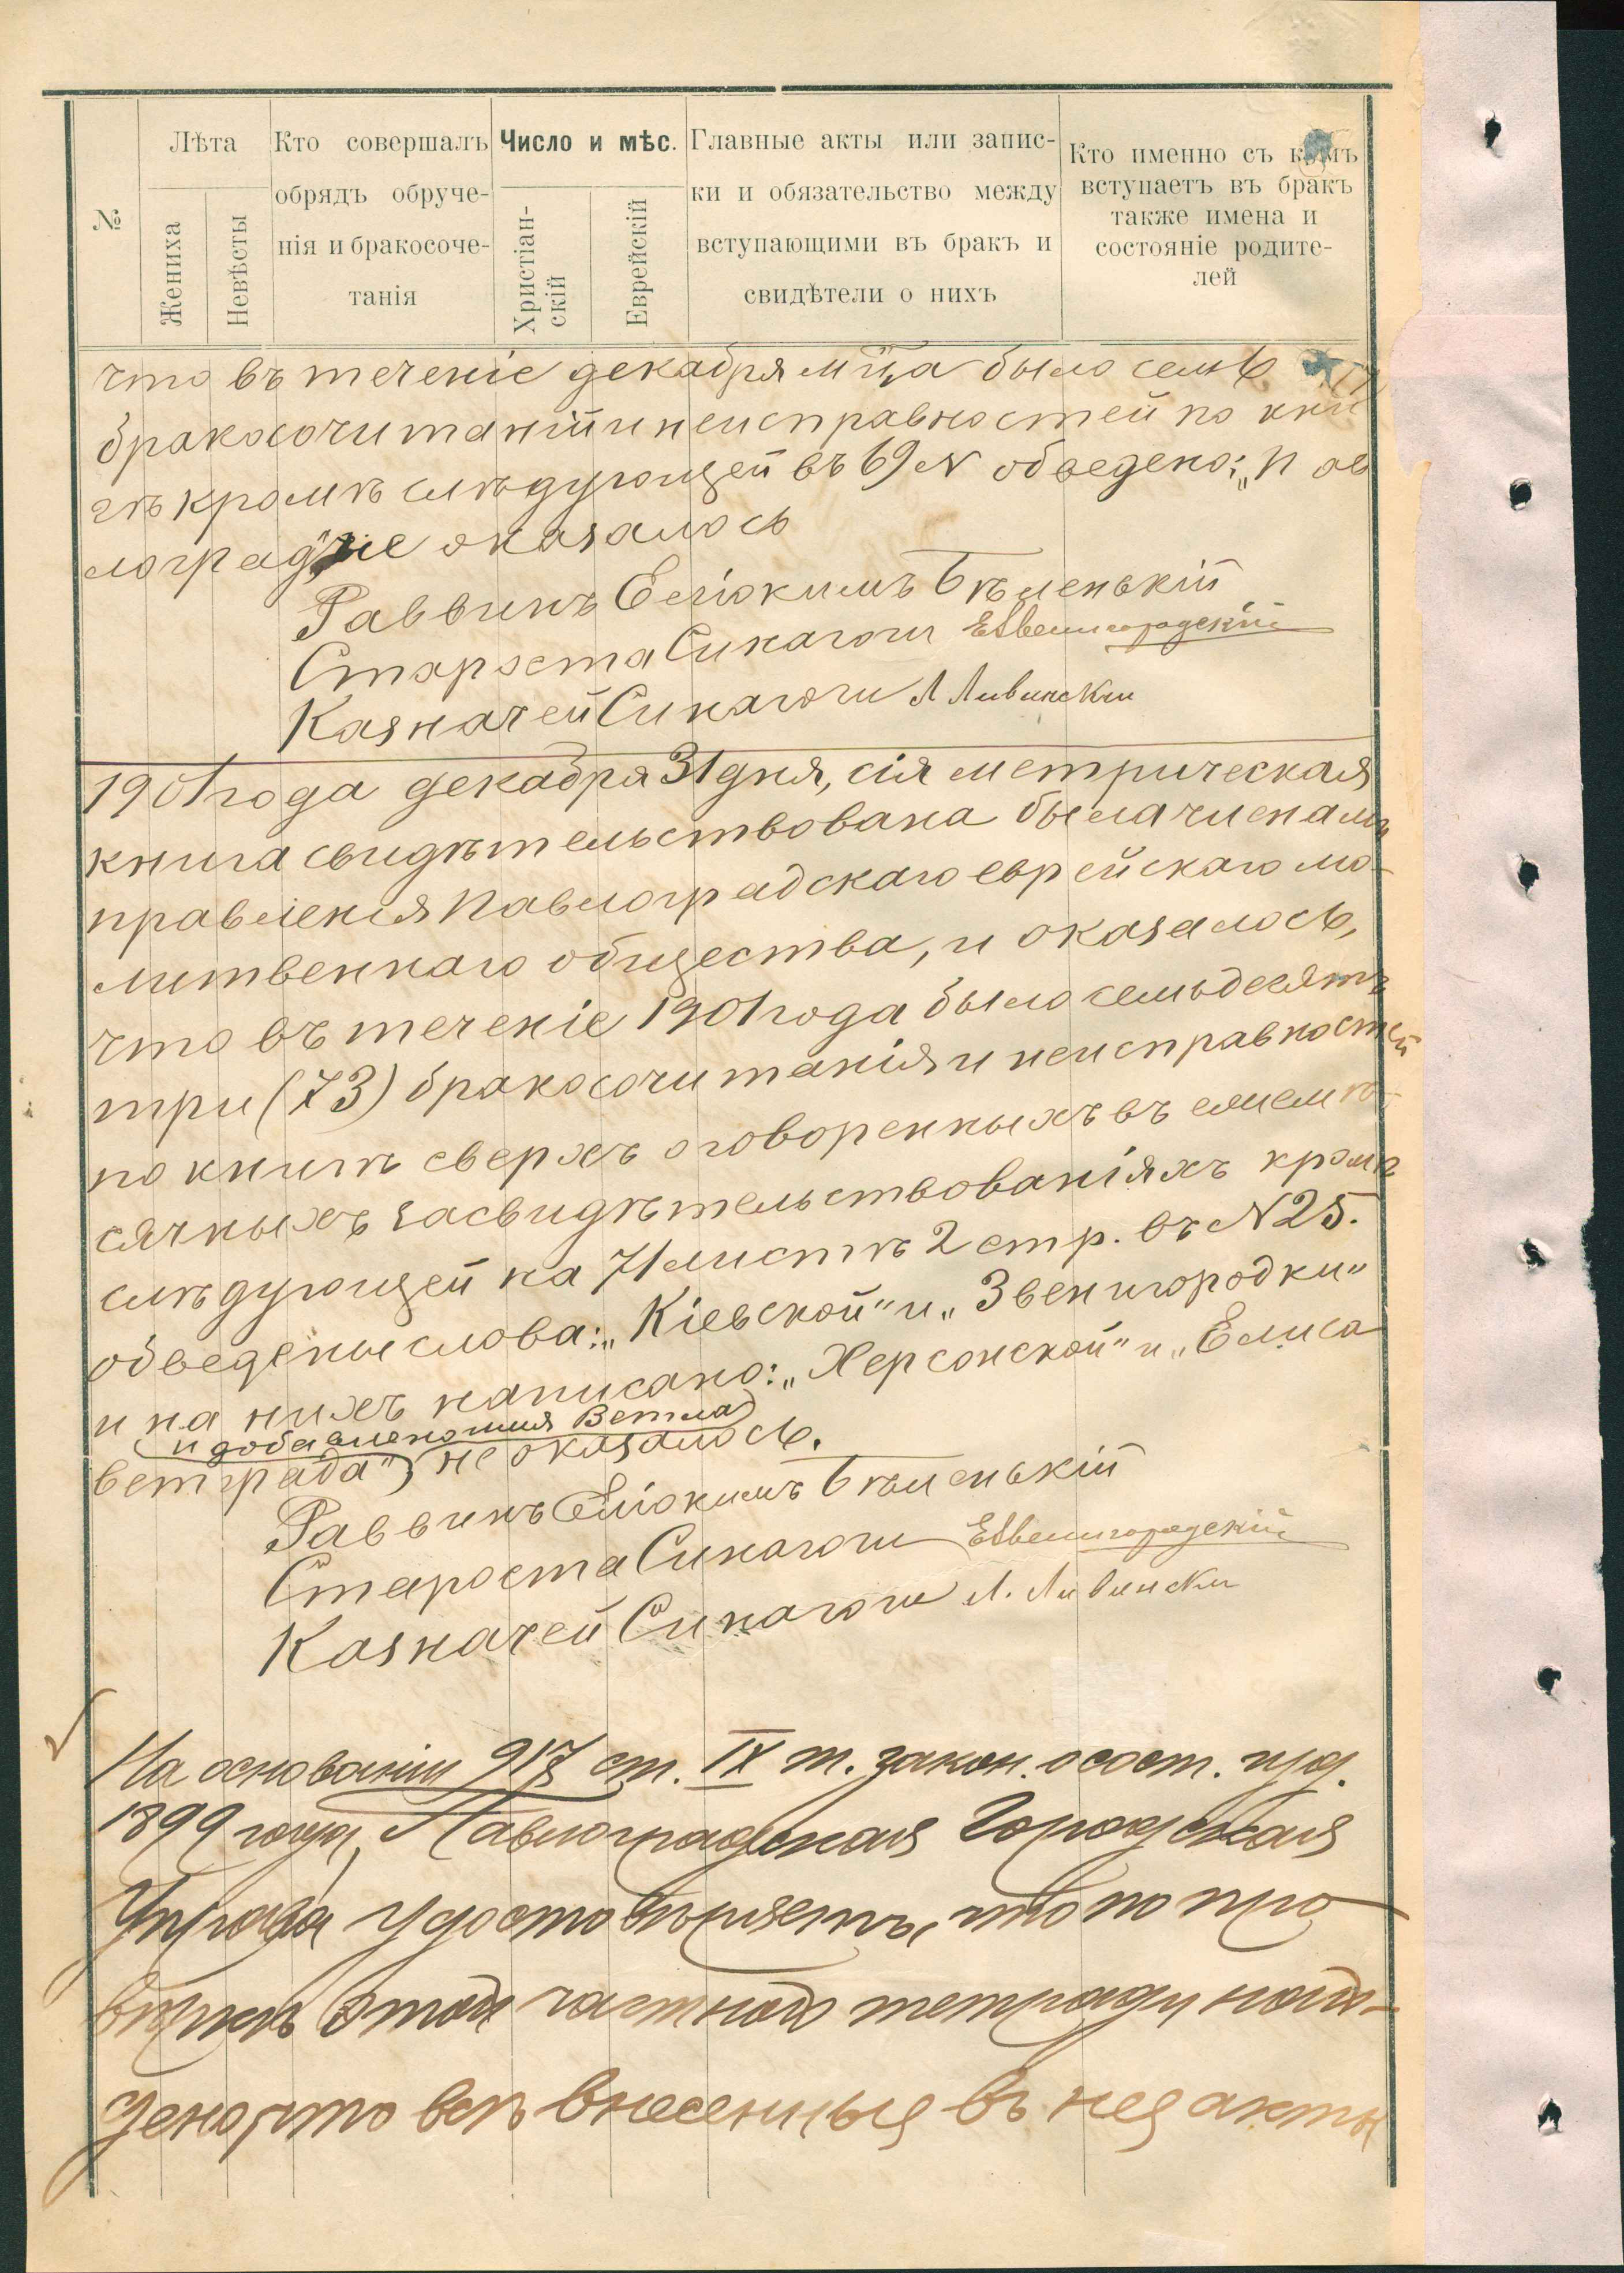 №
Лѣта
Жениха
Невѣсты
Кто совершалъ
обрядъ обруче-
нія и бракосоче-
танія
Число и мѣс.
Христіан-
скій
Еврейскій
Главные акты или запис-
ки и обязательство между
вступающими въ бракъ и
свидѣтели о нихъ
Кто именно съ кѣмъ
вступаетъ въ бракъ
также имена и
состояніе родите-
лей
что въ теченіе декабря мца было семь
бракосочитаній и неисправностей по кни
гѣ кромѣ слѣдующей въ 69 N обведено: „Пав
лоград" не оказалось
Раввинъ Еліокимъ Бѣленькій
Староста Синагоги ЕЗвенигородскій
Казначей Синагоги Л Ливински
1901 года декабря 31 дня, сія метрическая
книга свидѣтельствована была членами
правленія Павлоградскаго еврейскаго мо-
литвеннаго общества, и оказалось,
что въ теченіе 1901 года было семьдесятъ
три (73) бракосочитанія и неисправностей
по книгѣ сверхъ оговоренныхъ въ ежемѣ-
сячныхъ засвидѣтельствованіяхъ кромѣ
слѣдующей на 71 листѣ 2 стр. въ N 25.
обведены слова: „Кіевской" и „Звенигородки"
и на нихъ написано: „Херсонской" и „Елиса
и добавлено имя Ветла
ветграда" не оказалось.
Раввинъ Еліокимъ Бѣленькій
Староста Синагоги ЕЗвенигородскій
Казначей Синагоги Л. Ливински
На основаніи 917 ст. IX т. закон. о сост. изд.
1899 года, Павлоградская Городская
Управа удостовѣряетъ, что по про
вѣркѣ этой частной тетради най-
дено, что всѣ внесенныя въ нея акты